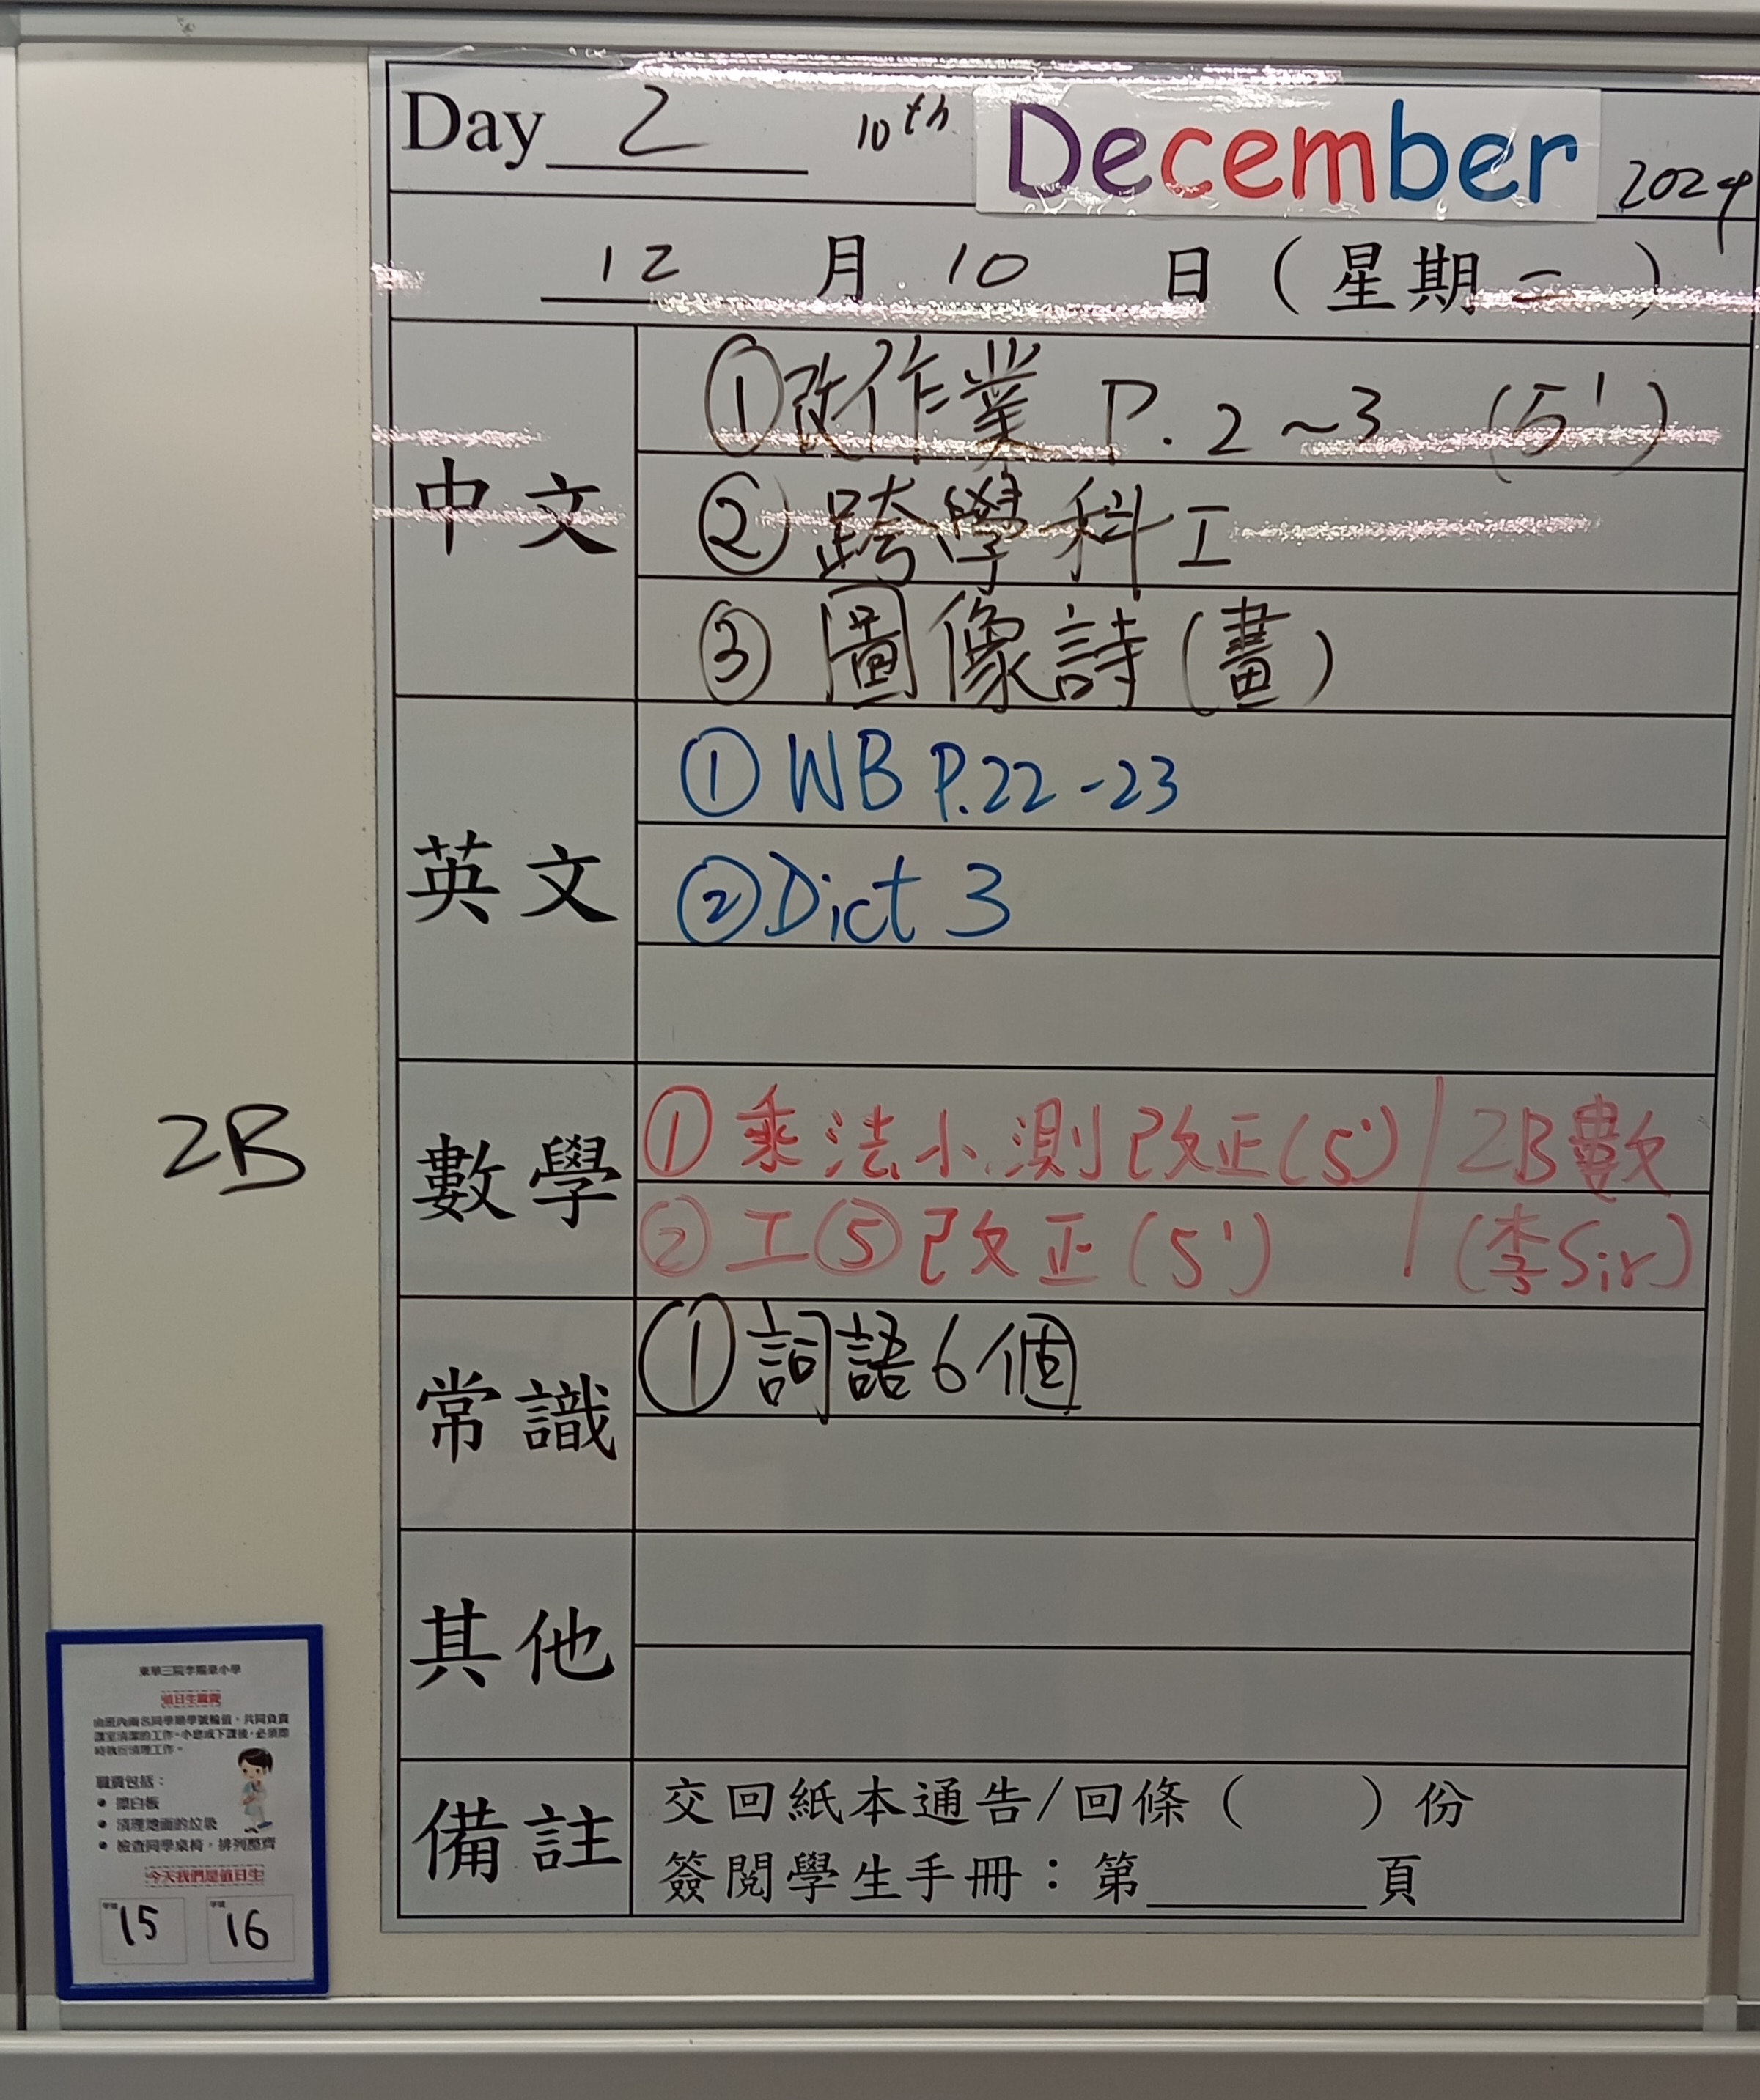 Day 2 10th December 2024
12 月 10 日 ( 星期二 )
中文
①改作業 P.2~3 (5')
②跨學科工
③圖像詩(畫)
英文
①WB P.22-23
②Dict 3
2B
數學
①乘法小測改正(5') / 2B數
②工⑤改正(5') (李Sir)
常識
①詞語6個
其他
備註
交回紙本通告/回條 ( ) 份
簽閱學生手冊：第______頁
值日生職責
由班內兩名同學順學號輪值，共同負責
課室清潔的工作。小息或下課後，必須即
時執行清理工作。
職責包括：
● 擦白板
● 清理地面的垃圾
● 檢查同學桌椅，排列整齊
今天我們是值日生
學號 15 學號 16